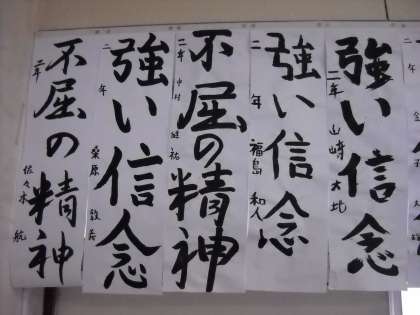 強い信念
二年 山崎 大地
強い信念
二年 福島 和人
不屈の精神
二年 中村
強い信念
二年 桑原
不屈の精神
二年 佐々木 航